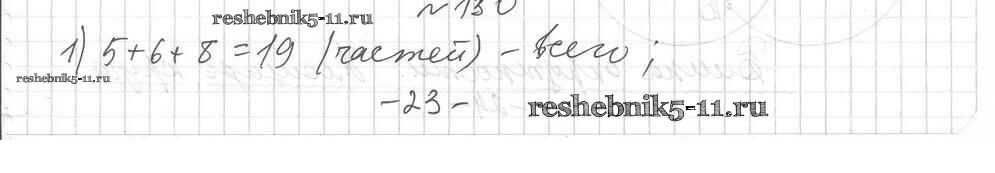 №130
reshebnik5-11.ru
1) 5+6+8=19 (частей) - всего;
reshebnik5-11.ru
-23-
reshebnik5-11.ru